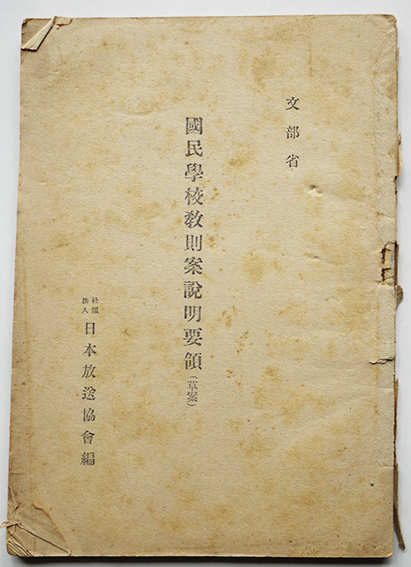 文部省
國民學校教則案說明要領(草案)
社團法人 日本放送協會編